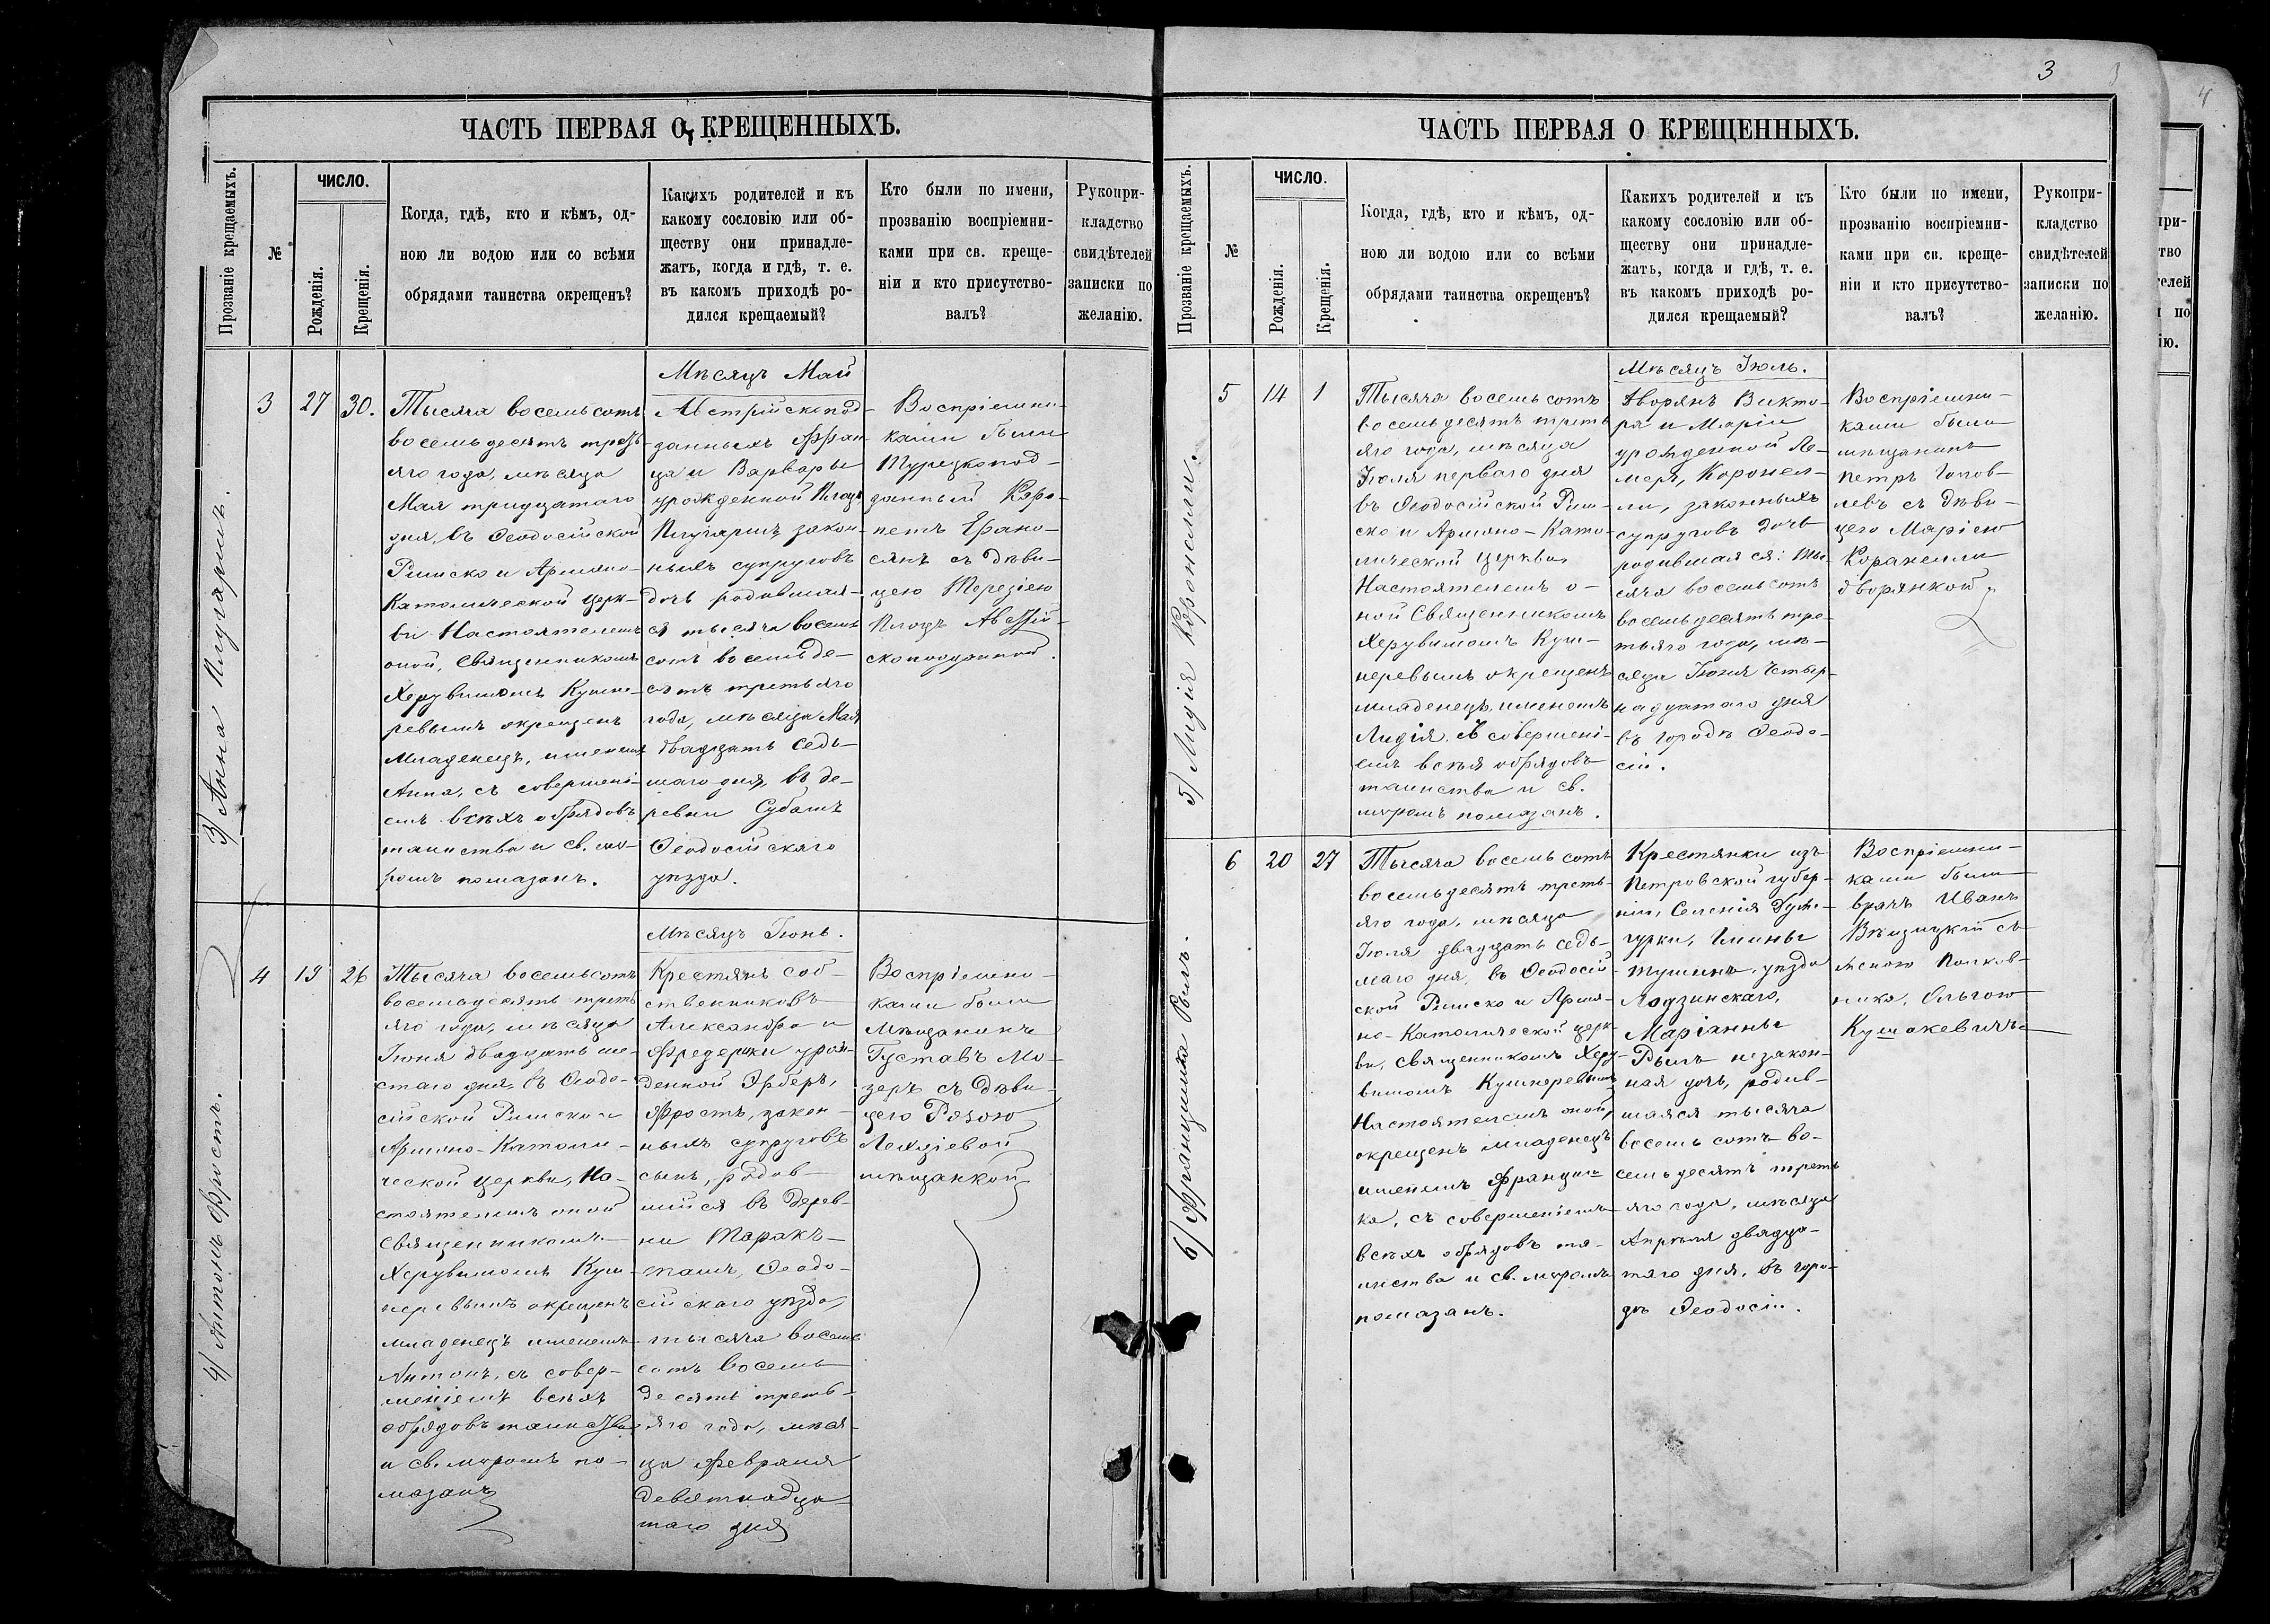 ЧАСТЬ ПЕРВАЯ О КРЕЩЕННЫХЪ.
Прозваніе крещаемыхъ.
№
ЧИСЛО.
Рожденія.
Крещенія.
Когда, гдѣ, кто и кѣмъ, од-
ною ли водою или со всѣми
обрядами таинства окрещенъ?
Какихъ родителей и къ
какому сословію или об-
ществу они принадле-
жатъ, когда и гдѣ, т. е.
въ какомъ приходѣ ро-
дился крещаемый?
Кто были по имени,
прозванію воспріемни-
ками при св. креще-
ніи и кто присутство-
валъ?
Рукопри-
кладство
свидѣтелей
записки по
желанію.
3) Анна
3
27
30.
Тысяча восемьсотъ
восемьдесятъ треть
яго года, мѣсяца
Мая тридцатаго
дня, въ Ѳеодосійской
Римско и Армяно-
Католической Церк-
ви Настоятелемъ
оной, Священникомъ
Херувимомъ Кушне-
ревымъ окрещенъ
Младенецъ, именемъ
Анна, съ совершені-
емъ всѣхъ обрядовъ
таинства и св. мѵ-
ромъ помазанъ.
Мѣсяцъ Май
Австрійскопод-
данныхъ Фран
ца и Варвары
урожденной
закон-
ныхъ супруговъ
дочь родившая-
ся тысяча восемь
сотъ восемьде-
сятъ третьяго
года, мѣсяца Мая
двадцать седь-
маго дня, въ де-
ревни Субашъ
Ѳеодосійскаго
уѣзда.
Воспріемни-
ками были
Турецкопод-
данный Кара-
петъ
съ дѣви-
цею Терезіею
Австрій-
скоподданной.
4) Антонъ Фростъ.
4
19
26
Тысяча восемьсотъ
восемьдесятъ треть
яго года, мѣсяца
Іюня двадцать ше-
стаго дня, въ Ѳеодо-
сійской Римско и
Армяно-Католи-
ческой Церкви, На-
стоятелемъ оной
Священникомъ
Херувимомъ Куш-
неревымъ окрещенъ
младенецъ именемъ
Антонъ, съ совер-
шеніемъ всѣхъ
обрядовъ таинства
и св. мѵромъ по-
мазанъ
Мѣсяцъ Іюнь.
Крестьянъ соб-
ственниковъ
Александра и
Фредерики урож-
денной Эрберъ,
Фростъ, закон-
ныхъ супруговъ
сынъ, родив-
шійся въ дерев-
ни Таракъ-
ташъ, Ѳеодо-
сійскаго уѣзда,
тысяча восемь
сотъ восемь
десятъ треть-
яго года, мѣся-
ца Февраля
девятнадца
таго дня
Воспріемни-
ками были
Мѣщанинъ
Густавъ Мо-
зеръ съ дѣви-
цею Розою
мѣщанкой
3
4
ЧАСТЬ ПЕРВАЯ О КРЕЩЕННЫХЪ.
Прозваніе крещаемыхъ.
№
ЧИСЛО.
Рожденія.
Крещенія.
Когда, гдѣ, кто и кѣмъ, од-
ною ли водою или со всѣми
обрядами таинства окрещенъ?
Какихъ родителей и къ
какому сословію или об-
ществу они принадле-
жатъ, когда и гдѣ, т. е.
въ какомъ приходѣ ро-
дился крещаемый?
Кто были по имени,
прозванію воспріемни-
ками при св. креще-
ніи и кто присутство-
валъ?
Рукопри-
кладство
свидѣтелей
записки по
желанію.
5) Лидія Коронелли.
5
14
1
Тысяча восемьсотъ
восемьдесятъ треть
яго года, мѣсяца
Іюля перваго дня
въ Ѳеодосійской Рим-
ско и Армяно-Като-
лической Церкви
Настоятелемъ о-
ной Священникомъ
Херувимомъ Куш-
неревымъ окрещенъ
младенецъ именемъ
Лидія, съ совершені-
емъ всѣхъ обрядовъ
таинства и св.
мѵромъ помазанъ.
Мѣсяцъ Іюль.
Дворянъ Викто-
ра и Маріи
урожденной Ле-
меръ, Коронел-
ли, законныхъ
супруговъ дочь
родившаяся: ты-
сяча восемьсотъ
восемьдесятъ тре-
тьяго года, мѣ-
сяца Іюня Четыр-
надцатаго дня
въ городѣ Ѳеодо-
сіи.
Воспріемни-
ками были
мѣщанинъ
Петръ
съ дѣви-
цею Маріею
Коранелли
дворянкой
6) Францишка Рымъ.
6
20
27
Тысяча восемьсотъ
восемьдесятъ треть-
яго года, мѣсяца
Іюля двадцать седь-
маго дня, въ Ѳеодосій-
ской Римско и Армя-
но-Католической церк-
ви, Священникомъ Херу-
вимомъ Кушнеревымъ
Настоятелемъ оной,
окрещенъ младенецъ
именемъ Францишь
ка, съ совершеніемъ
всѣхъ обрядовъ та-
инства и св. мѵромъ
помазанъ.
Крестянки изъ
Петровской губер-
ніи, Селенія
гурки, Гмины
уѣзда
Лодзинскаго,
Маріанны
Рымъ незакон-
ная дочь, родив-
шаяся тысяча
восемь сотъ во-
семьдесятъ треть
яго года, мѣсяца
Апрѣля двадца-
таго дня, въ горо-
дѣ Ѳеодосіи.
Воспріемни-
ками были
врачъ Иванъ
съ
женою Полков-
ника, Ольгою
Кушакевичъ